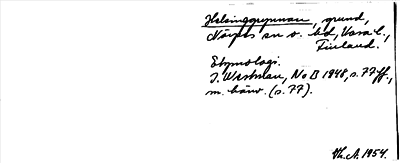 Helsinggrynnan, grund,
Närpes sn o. hd, Vasa l.,
Finland.
Etymologi.
J. Westman, No B 1948, s. 77 ff.,
m. hänv. (s. 77).
Th. A. 1954.